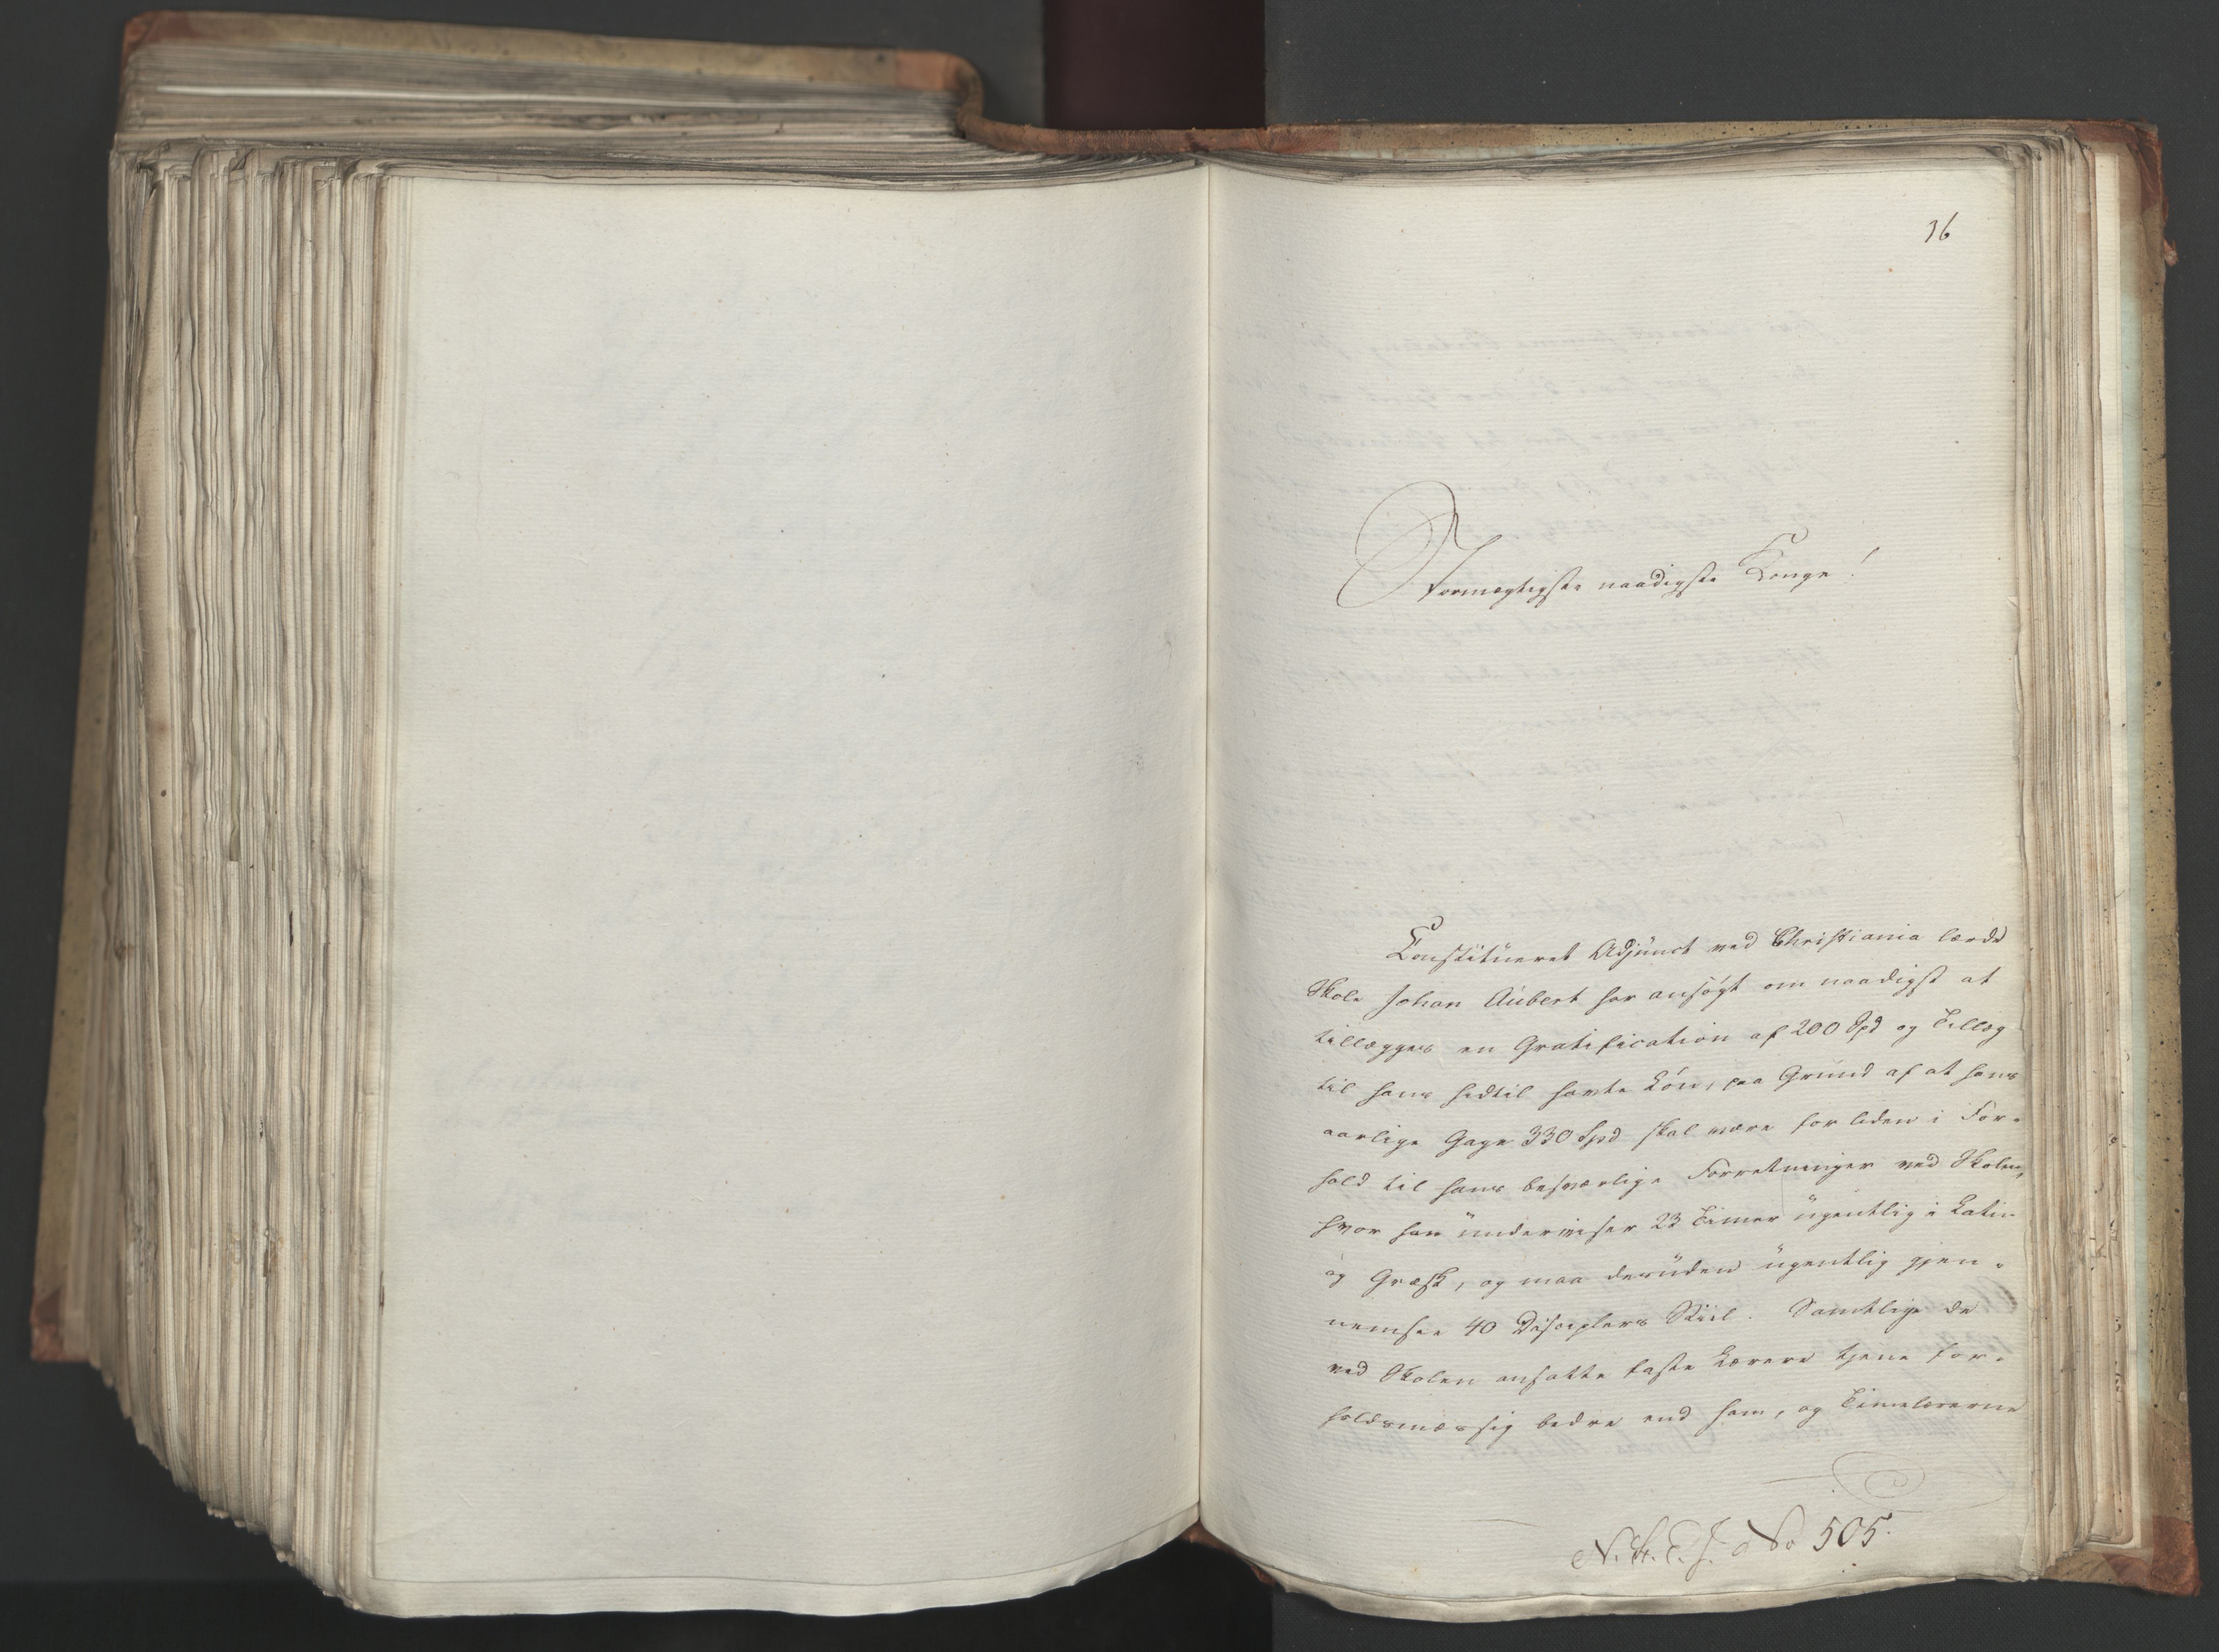 36
Stormægtigste naadigste Konge!
Constitueret Adjunct ved Christiania lærde
Skole Johan Aubert har ansøgt om naadigst at
tillægges en Gratification af 200 Spd og Tillæg
til hans hidtil havte Lön, paa Grund af at hans
aarlige Gage 330 Spd skal være for liden i For-
hold til hans besværlige Forretninger ved Skolen,
hvor han underviser 23 Timer ugentlig i Latin
og Græsk, og maa desuden ugentlig gjen-
nemsee 40 Disciplers Stiil. Samtlige de
ved Skolen ansatte faste Lærere tjene for-
holdsmæssig bedre end ham, og Timelærerne
No 505.